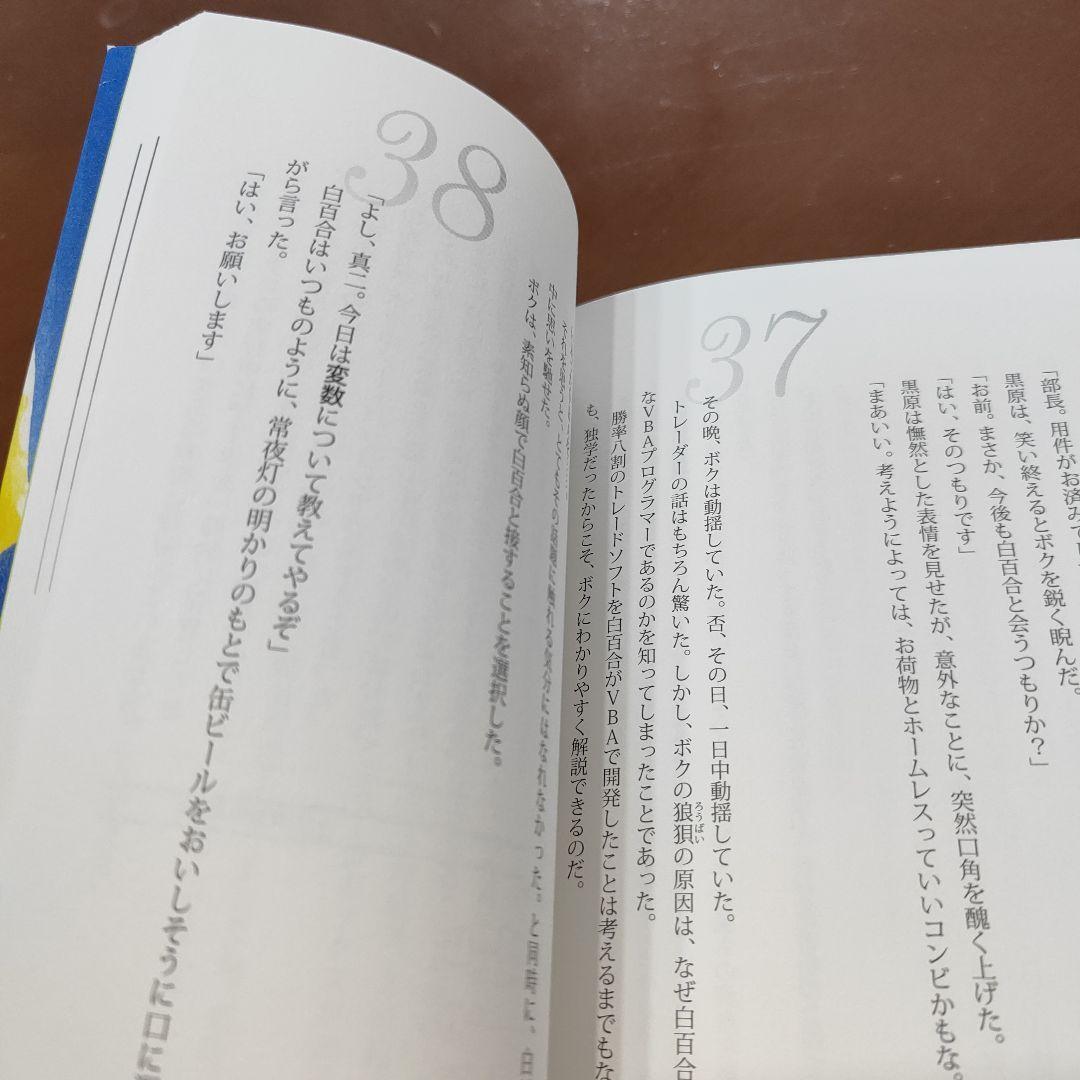 「部長。用件がお済みでし
黒原は、笑い終えるとボクを鋭く睨んだ。
「お前。まさか、今後も白百合と会うつもりか？」
「はい、そのつもりです」
黒原は憮然とした表情を見せたが、意外なことに、突然口角を醜く上げた。
「まあいい。考えようによっては、お荷物とホームレスっていいコンビかもな。
37
その晩、ボクは動揺していた。否、その日、一日中動揺していた。
トレーダーの話はもちろん驚いた。しかし、ボクの狼狽の原因は、なぜ白百合
ろうばい
なVBAプログラマーであるのかを知ってしまったことであった。
勝率八割のトレードソフトを白百合がVBAで開発したことは考えるまでもな
も、独学だったからこそ、ボクにわかりやすく解説できるのだ。
にはなれなかった。と同時に、白
中に思いを馳せた。
ボクは、素知らぬ顔で白百合と接することを選択した。
38
「よし、真二。今日は変数について教えてやるぞ」
白百合はいつものように、常夜灯の明かりのもとで缶ビールをおいしそうに口に
がら言った。
「はい、お願いします」